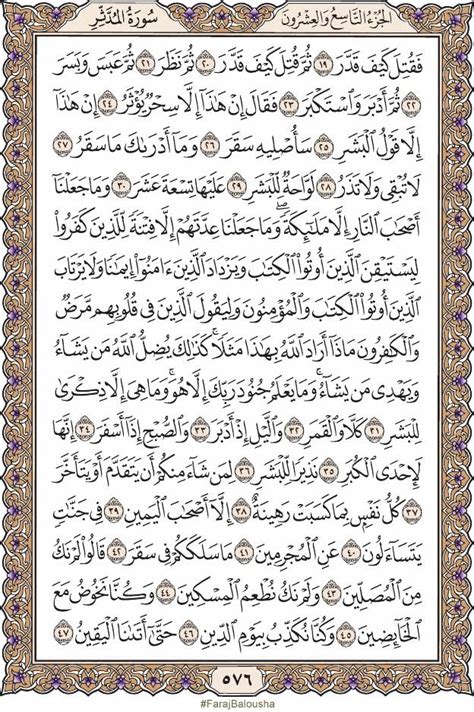 الجزء التاسع والعشرون
سورة المدثر
فَقُتِلَ كَيْفَ قَدَّرَ ١٩ ثُمَّ قُتِلَ كَيْفَ قَدَّرَ ٢٠ ثُمَّ نَظَرَ ٢١ ثُمَّ عَبَسَ وَبَسَرَ
٢٢ ثُمَّ أَدْبَرَ وَٱسْتَكْبَرَ ٢٣ فَقَالَ إِنْ هَٰذَآ إِلَّا سِحْرٌ يُؤْثَرُ ٢٤ إِنْ هَٰذَآ
إِلَّا قَوْلُ ٱلْبَشَرِ ٢٥ سَأُصْلِيهِ سَقَرَ ٢٦ وَمَآ أَدْرَىٰكَ مَا سَقَرُ ٢٧
لَا تُبْقِى وَلَا تَذَرُ ٢٨ لَوَّاحَةٌ لِّلْبَشَرِ ٢٩ عَلَيْهَا تِسْعَةَ عَشَرَ ٣٠ وَمَا جَعَلْنَآ
أَصْحَٰبَ ٱلنَّارِ إِلَّا مَلَٰٓئِكَةً ۙ وَمَا جَعَلْنَا عِدَّتَهُمْ إِلَّا فِتْنَةً لِّلَّذِينَ كَفَرُوا۟
لِيَسْتَيْقِنَ ٱلَّذِينَ أُوتُوا۟ ٱلْكِتَٰبَ وَيَزْدَادَ ٱلَّذِينَ ءَامَنُوٓا۟ إِيمَٰنًا ۙ وَلَا يَرْتَابَ
ٱلَّذِينَ أُوتُوا۟ ٱلْكِتَٰبَ وَٱلْمُؤْمِنُونَ ۙ وَلِيَقُولَ ٱلَّذِينَ فِى قُلُوبِهِم مَّرَضٌ
وَٱلْكَٰفِرُونَ مَاذَآ أَرَادَ ٱللَّهُ بِهَٰذَا مَثَلًا ۚ كَذَٰلِكَ يُضِلُّ ٱللَّهُ مَن يَشَآءُ
وَيَهْدِى مَن يَشَآءُ ۚ وَمَا يَعْلَمُ جُنُودَ رَبِّكَ إِلَّا هُوَ ۚ وَمَا هِىَ إِلَّا ذِكْرَىٰ
لِلْبَشَرِ ٣١ كَلَّا وَٱلْقَمَرِ ٣٢ وَٱلَّيْلِ إِذْ أَدْبَرَ ٣٣ وَٱلصُّبْحِ إِذَآ أَسْفَرَ ٣٤ إِنَّهَا
لَإِحْدَى ٱلْكُبَرِ ٣٥ نَذِيرًا لِّلْبَشَرِ ٣٦ لِمَن شَآءَ مِنكُمْ أَن يَتَقَدَّمَ أَوْ يَتَأَخَّرَ
٣٧ كُلُّ نَفْسٍۭ بِمَا كَسَبَتْ رَهِينَةٌ ٣٨ إِلَّآ أَصْحَٰبَ ٱلْيَمِينِ ٣٩ فِى جَنَّٰتٍ
يَتَسَآءَلُونَ ٤٠ عَنِ ٱلْمُجْرِمِينَ ٤١ مَا سَلَكَكُمْ فِى سَقَرَ ٤٢ قَالُوا۟ لَمْ نَكُ
مِنَ ٱلْمُصَلِّينَ ٤٣ وَلَمْ نَكُ نُطْعِمُ ٱلْمِسْكِينَ ٤٤ وَكُنَّا نَخُوضُ مَعَ
ٱلْخَآئِضِينَ ٤٥ وَكُنَّا نُكَذِّبُ بِيَوْمِ ٱلدِّينِ ٤٦ حَتَّىٰٓ أَتَىٰنَا ٱلْيَقِينُ ٤٧
٥٧٦
#FarajBalousha